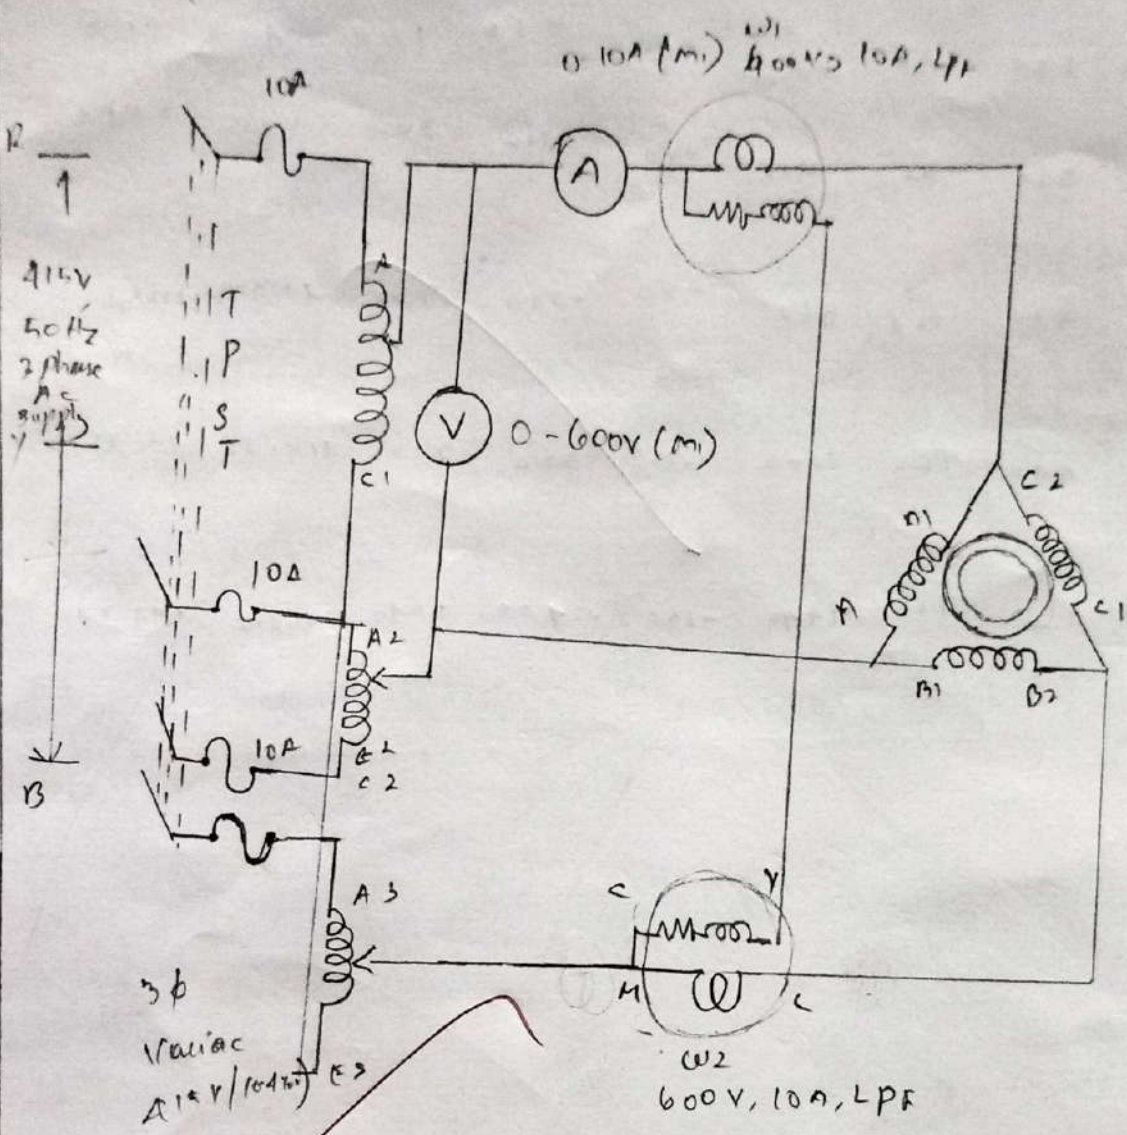 0-10A (MI)
W1
600V, 10A, LPF
10A
R
A
415V,
50Hz
3 phase
AC
supply
Y
T
P
S
T
A
C1
V
0-600V (MI)
C2
A1
A
C1
B1
B2
10A
A2
10A
E2
C2
B
A3
C
V
M
L
3φ
Variac
E3
W2
600V, 10A, LPF